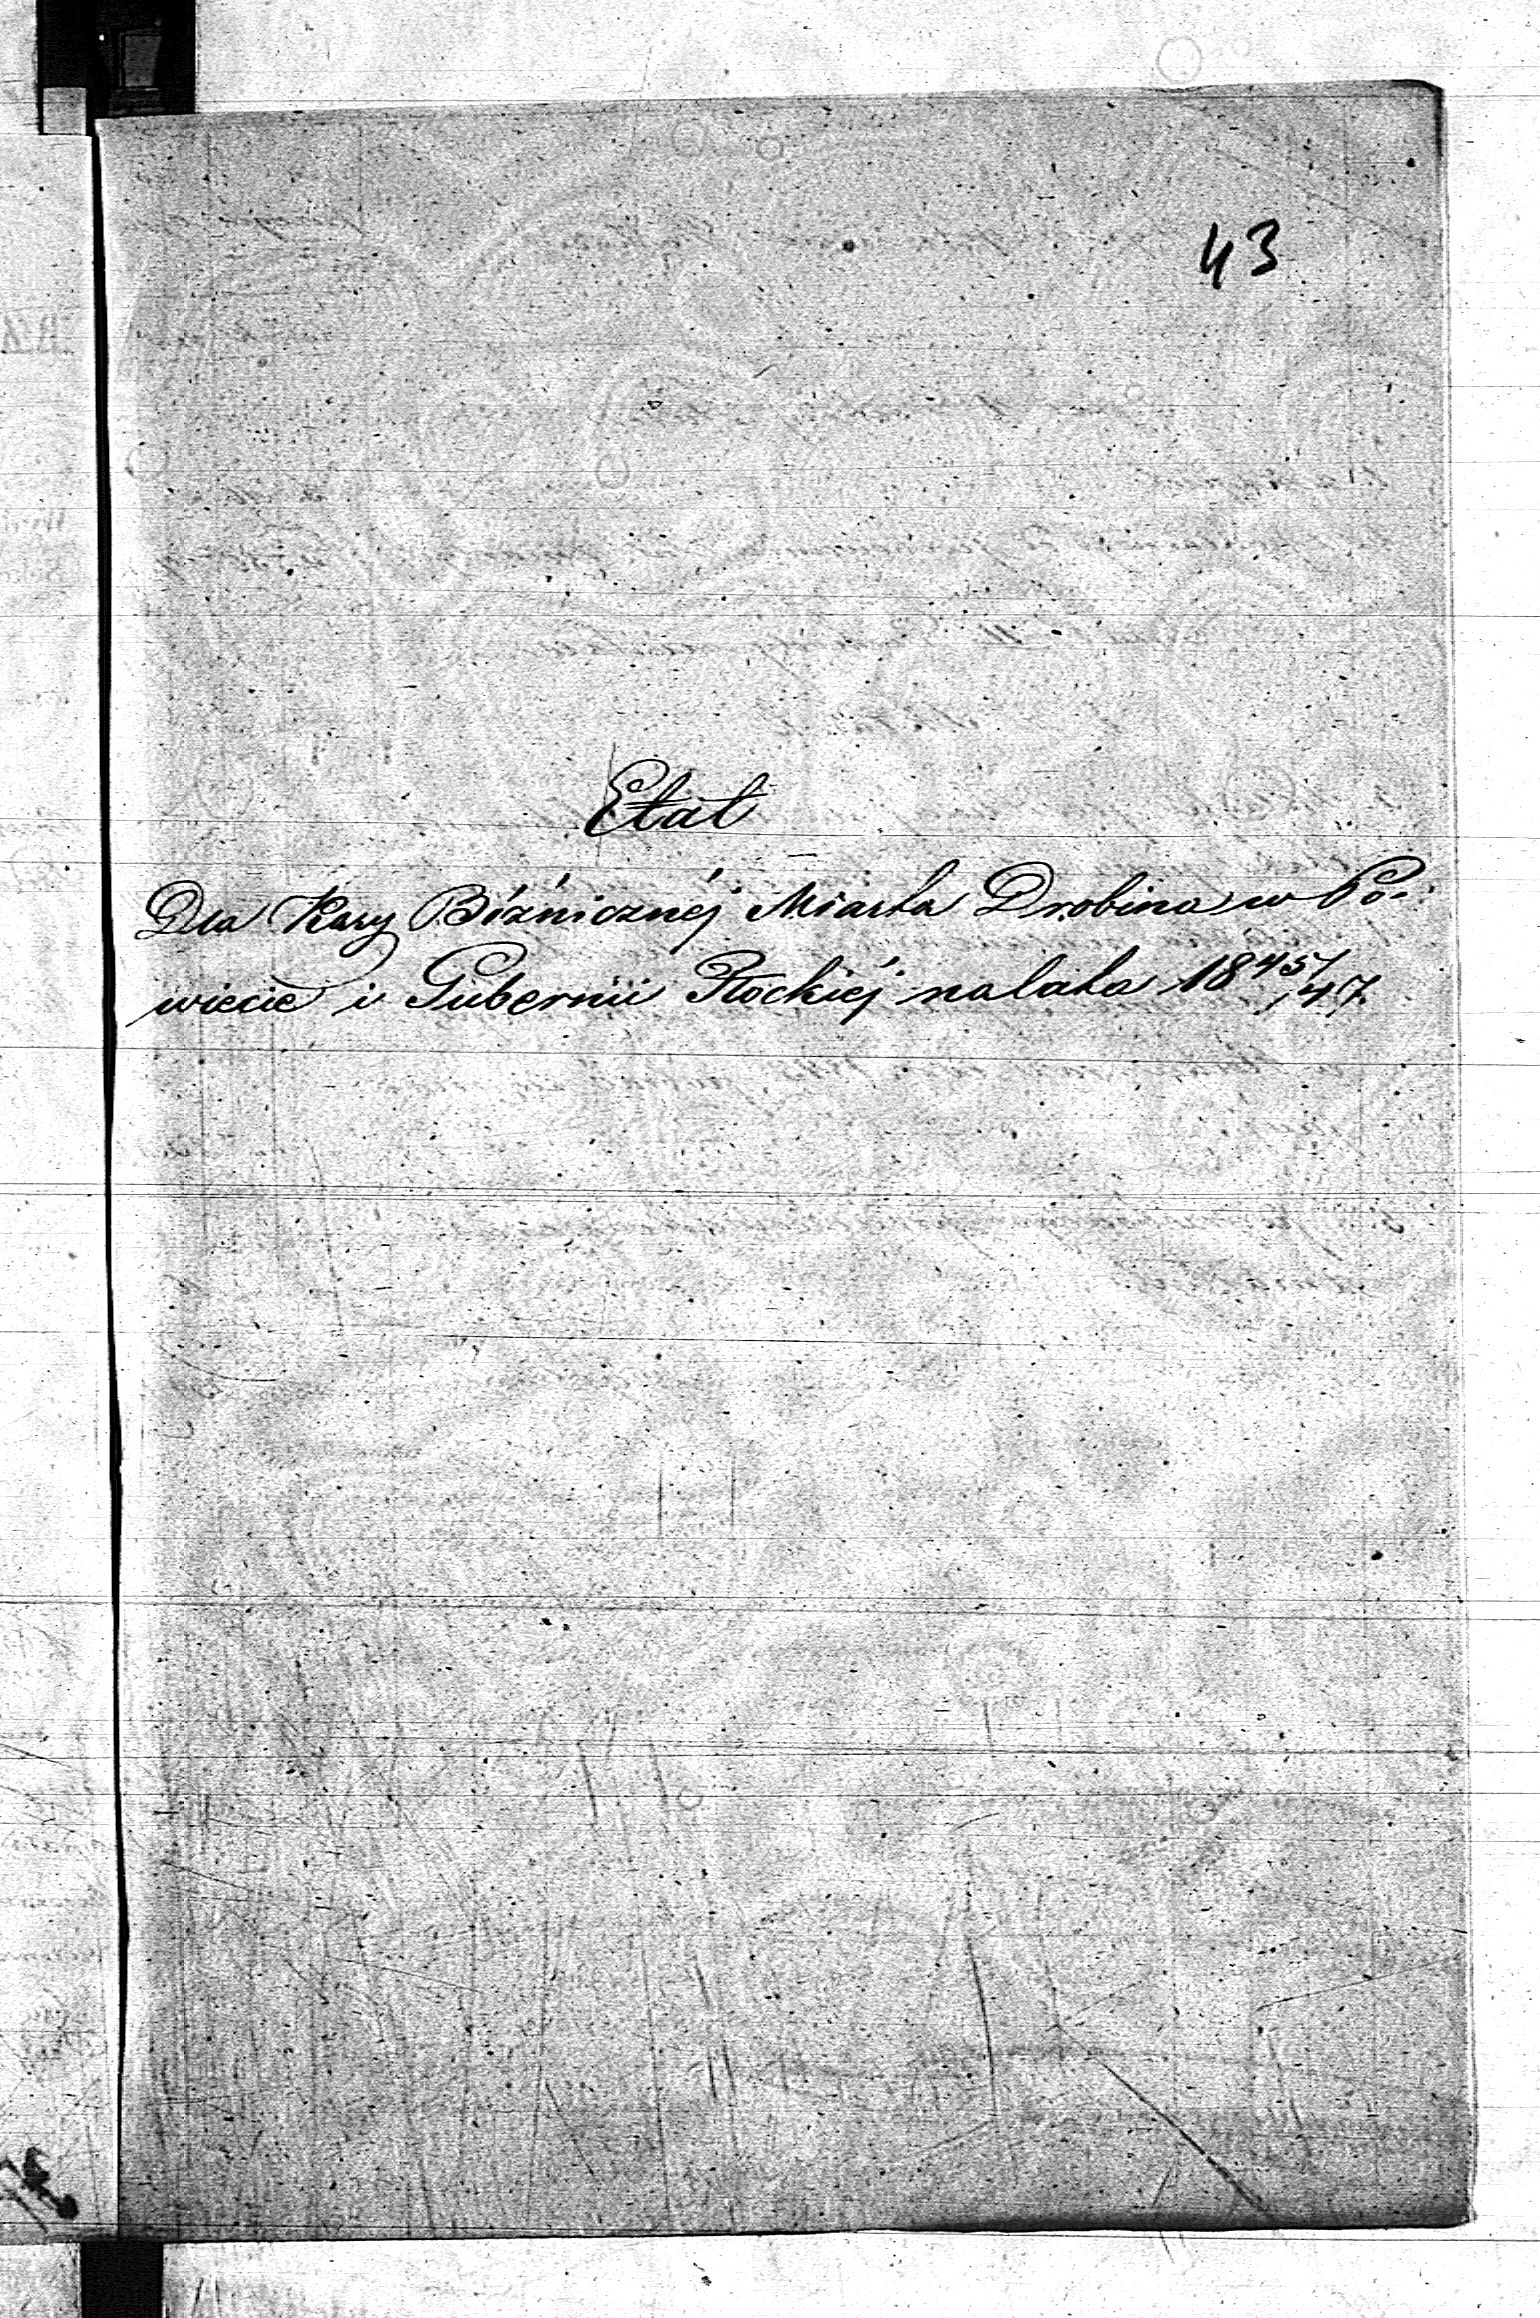 43
Etat
Dla Kasy Bóźnicznéj Miasta Drobina w Po-
wiecie i Gubernii Płockiéj na lata 1845/47